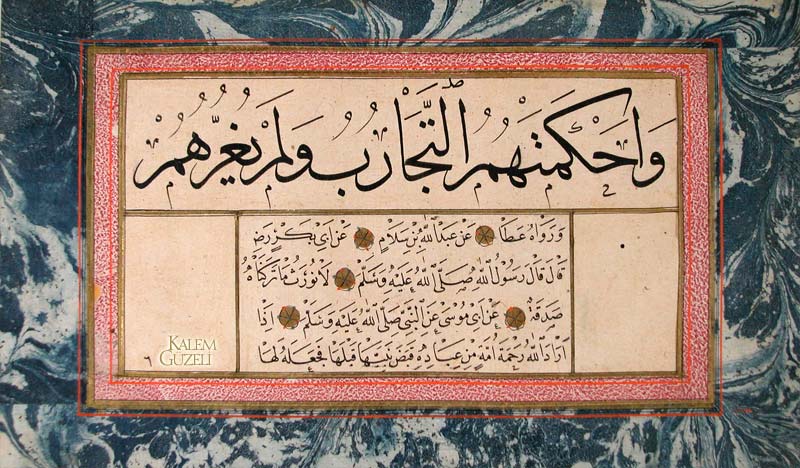 وَاَحْكَمَتْهُمُ التَّجَارِبُ وَلَمْ يَغُرَّهُمْ
وَرَوَاهُ عَطَا عَنْ عَبْدِ اللّٰهِ بْنِ سَلَامٍ عَنْ اَبِي بَكْرٍ رَضِ
قَالَ قَالَ رَسُولُ اللّٰهِ صَلَّى اللّٰهُ عَلَيْهِ وَسَلَّمْ لَا نُورَثُ مَا تَرَكْنَاهُ
صَدَقَةٌ عَنْ اَبِي مُوسَى عَنِ النَّبِيِّ صَلَّى اللّٰهُ عَلَيْهِ وَسَلَّمْ اِذَا
اَرَادَ اللّٰهُ رَحْمَةَ اُمَّةٍ مِنْ عِبَادِهِ قَبَضَ نَبِيَّهَا قَبْلَهَا فَجَعَلَهُ لَهَا
٦
KALEM
GUZELI